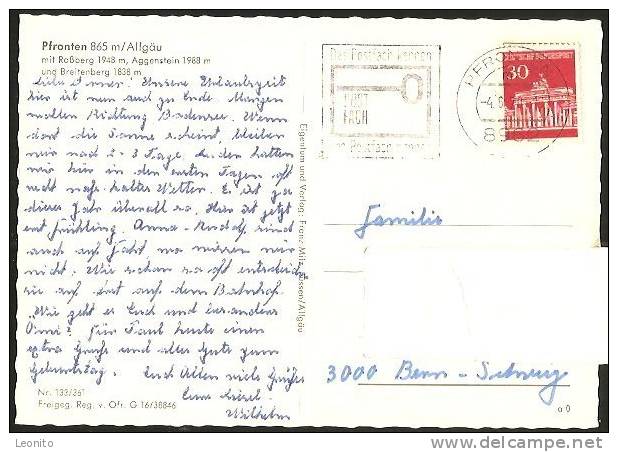 Pfronten 865 m/Allgäu
mit Roßberg 1948 m, Aggenstein 1988 m
und Breitenberg 1838 m
Unsere Urlaubszeit
hier ist nun auch zu Ende. Morgen
wollen Richtung Bodensee. Wenn
dort die Sonne scheint, bleiben
wir noch 2-3 Tage. Leider hatten
wir hier in den ersten Tagen oft
recht nass-kaltes Wetter. Es ist ja
dieses Jahr überall so. Hier ist jetzt
erst Frühling. Anna-Rudolf sind
auch auf Fahrt wo wissen wir
nicht. Wie schon so oft entscheiden
sie auf erst auf dem Bahnhof.
Wie geht es Euch und besonders
Omi? Für Paul heute einen
extra Gruß und alles Gute zum
Geburtstag. Euch Allen viele Grüße
Eure Liesel
Wilhelm
Nr. 133/361
Freigeg. Reg. v. Ofr. G 16/38846
Eigentum und Verlag: Franz Milz, Füssen/Allgäu
Das Postfach
POST
FACH
Postfach
PFRO
-4.6
30
DEUTSCHE BUNDESPOST
Familie
3000 Bern - Schweiz
Leonito
www.delcampe.net